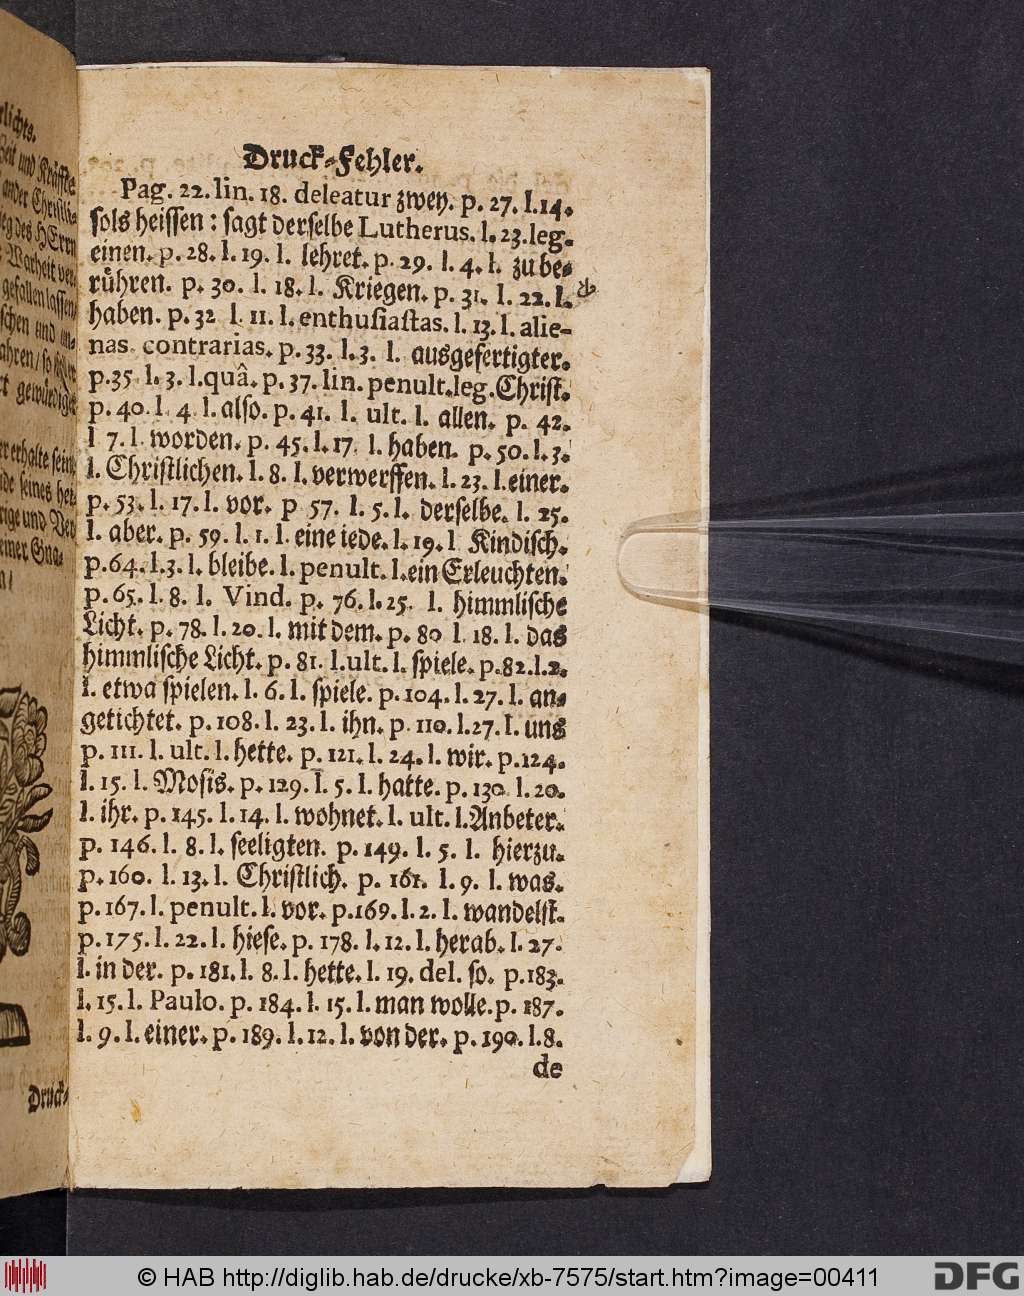 Druck-Fehler.
Pag. 22. lin. 18. deleatur zwey. p. 27. l. 14.
sols heissen: sagt derselbe Lutherus. l. 23. leg.
einen. p. 28. l. 19. l. lehret. p. 29. l. 4. l. zu be-
rühren. p. 30. l. 18. l. Kriegen. p. 31. l. 22. l.
haben. p. 32 l 11. l. enthusiastas. l. 13. l. alie-
nas contrarias. p. 33. l. 3. l. ausgefertigter.
p. 35 l. 3. l. quâ. p. 37. lin. penult. leg. Christ.
p. 40. l. 4 l. also. p. 41. l. ult. l. allen. p. 42.
l 7. l. worden. p. 45. l. 17 l. haben. p. 50. l. 3.
l. Christlichen. l. 8. l. verwerffen. l. 23. l. einer.
p. 53. l. 17. l. vor. p 57. l. 5. l. derselbe. l. 25.
l. aber. p. 59. l. 1. l. eine iede. l. 19. l Kindisch.
p. 64. l. 3. l. bleibe. l. penult. l. ein Erleuchten.
p. 65. l. 8. l. Vind. p. 76. l. 25. l. himmlische
Licht. p. 78. l. 20. l. mit dem. p. 80 l. 18. l. das
himmlische Licht. p. 81. l. ult. l. spiele. p. 82. l. 2.
l. etwa spielen. l. 6. l. spiele. p. 104. l. 27. l. an-
getichtet. p. 108. l. 23. l. ihn. p. 110. l. 27. l. uns
p. 111. l. ult. l. hette. p. 121. l. 24. l. wir. p. 124.
l. 15. l. Mosis. p. 129. l. 5. l. hatte. p. 130 l. 20.
l. ihr. p. 145. l. 14. l. wohnet. l. ult. l. Anbeter.
p. 146. l. 8. l. seeligten. p. 149. l. 5. l. hierzu.
p. 160. l. 13. l. Christlich. p. 161. l. 9. l. was.
p. 167. l. penult. l. vor. p. 169. l. 2. l. wandelst.
p. 175. l. 22. l. hiese. p. 178. l. 12. l. herab. l. 27.
l. in der. p. 181. l. 8. l. hette. l. 19. del. so. p. 183.
l. 15. l. Paulo. p. 184. l. 15. l. man wolle. p. 187.
l. 9. l. einer. p. 189. l. 12. l. von der. p. 190. l. 8.
de
Druck-
© HAB http://diglib.hab.de/drucke/xb-7575/start.htm?image=00411
DFG